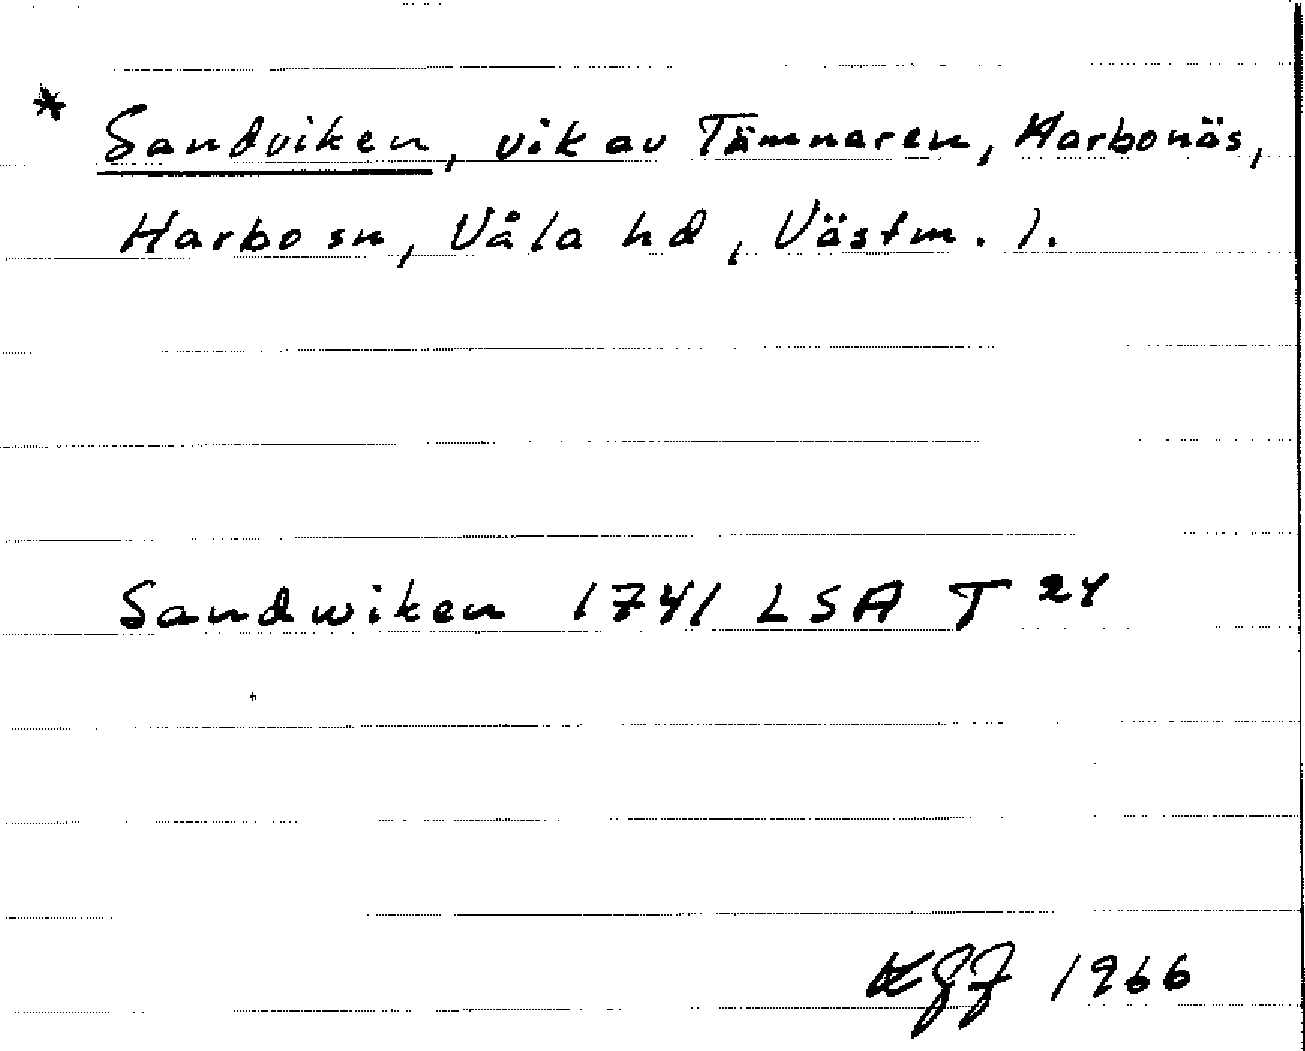 * Sandviken, vik av Tämnaren, Harbonäs,
Harbo sn, Våla hd, Västm. l.
Sandwiken 1741 LSA T 24
1966